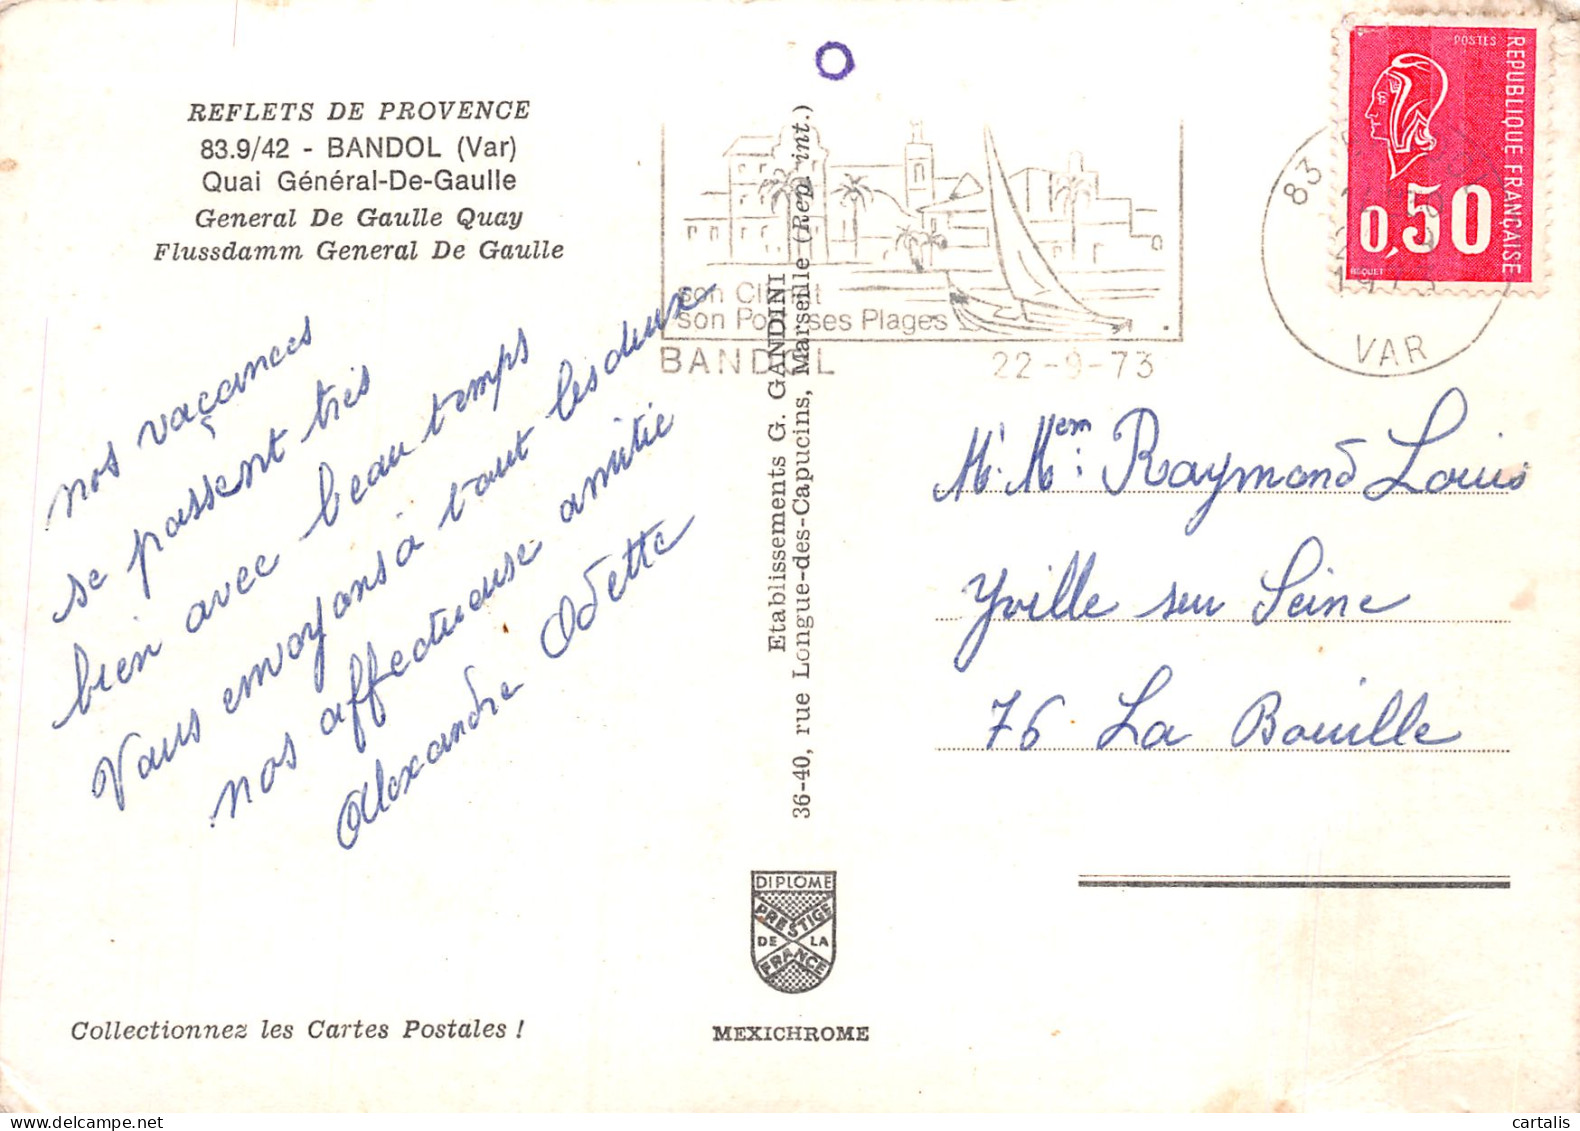 REFLETS DE PROVENCE
83.9/42 - BANDOL (Var)
Quai Général-De-Gaulle
General De Gaulle Quay
Flussdamm General De Gaulle
nos vaçances
se passent très
bien avec beau temps
Vous envoyons à tout les deux
nos affectueuse amitié
Alexandre Odette
Collectionnez les Cartes Postales !
Etablissements G. GANDINI
36-40, rue Longue-des-Capucins, Marseille (Rep. int.)
DIPLOME
PRESTIGE
DE LA
FRANCE
MEXICHROME
son Climat
son Port ses Plages
BANDOL 22-9-73
83
VAR
POSTES
REPUBLIQUE FRANÇAISE
0,50
BEQUET
Mr. Mem: Raymond Louis
Yville sur Seine
76 La Bouille
cartalis
delcampe.net